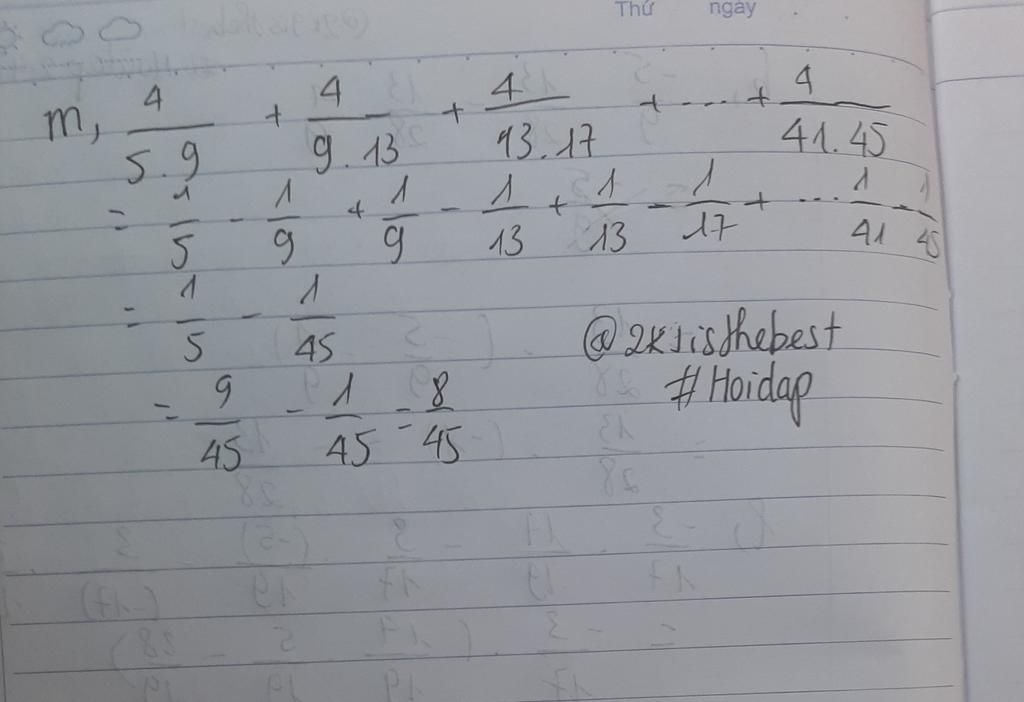 Thứ ngày
m, 4/5.9 + 4/9.13 + 4/13.17 + ... + 4/41.45
= 1/5 - 1/9 + 1/9 - 1/13 + 1/13 - 1/17 + ... 1/41 - 1/45
= 1/5 - 1/45
= 9/45 - 1/45 = 8/45
@2k5isthebest
#Hoidap